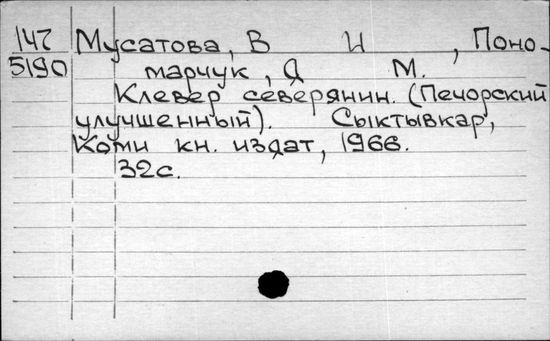 147 Мусатова, В И , Поно-
5190 марчук , Я М.
Клевер северянин. (Печорский
улучшенный). Сыктывкар,
Коми кн. издат, 1966.
32с.